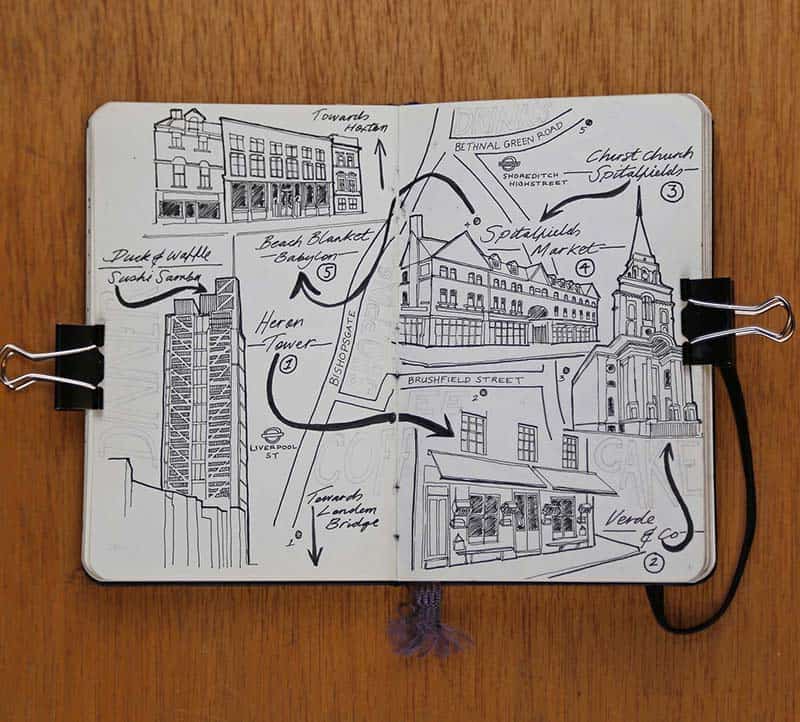 Towards
Hoxton
DRINKS
BETHNAL GREEN ROAD
5
SHOREDITCH
HIGHSTREET
Christ Church
Spitalfields
3
4
Spitalfields
Market
4
Duck & Waffle
Sushi Samba
Beach Blanket
Babylon
5
Heron
Tower
1
DINNER
SHOPPING
BISHOPSGATE
BRUSHFIELD STREET
2
3
LIVERPOOL
ST
COFFEE
CAKE
Towards
London
Bridge
1
Verde
& Co
2